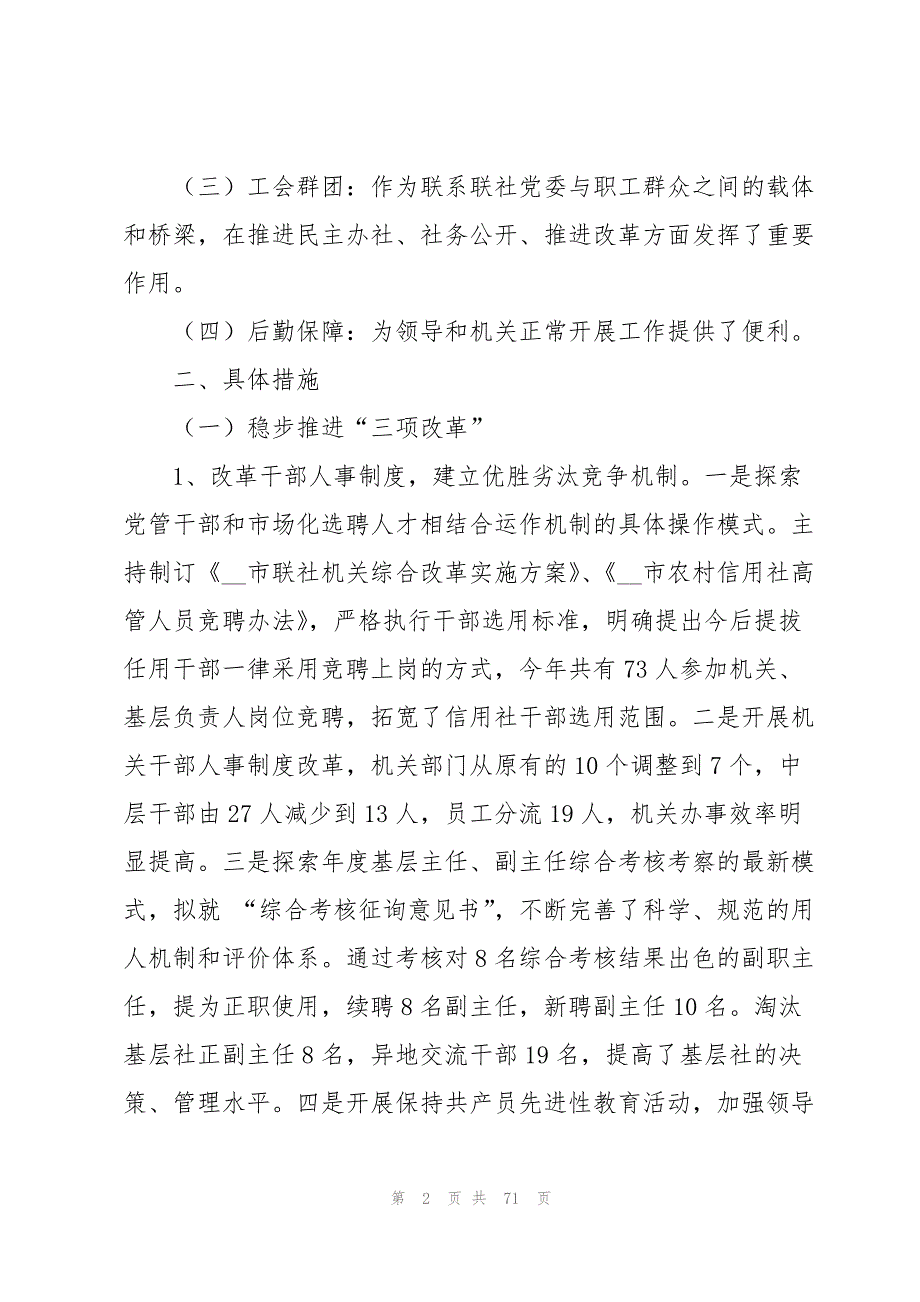 （三）工会群团：作为联系联社党委与职工群众之间的载体
和桥梁，在推进民主办社、社务公开、推进改革方面发挥了重要
作用。
（四）后勤保障：为领导和机关正常开展工作提供了便利。
二、具体措施
（一）稳步推进“三项改革”
1、改革干部人事制度，建立优胜劣汰竞争机制。一是探索
党管干部和市场化选聘人才相结合运作机制的具体操作模式。主
持制订《__市联社机关综合改革实施方案》、《__市农村信用社高
管人员竞聘办法》，严格执行干部选用标准，明确提出今后提拔
任用干部一律采用竞聘上岗的方式，今年共有 73 人参加机关、
基层负责人岗位竞聘，拓宽了信用社干部选用范围。二是开展机
关干部人事制度改革，机关部门从原有的 10 个调整到 7 个，中
层干部由 27 人减少到 13 人，员工分流 19 人，机关办事效率明
显提高。三是探索年度基层主任、副主任综合考核考察的最新模
式，拟就 “综合考核征询意见书”，不断完善了科学、规范的用
人机制和评价体系。通过考核对 8 名综合考核结果出色的副职主
任，提为正职使用，续聘 8 名副主任，新聘副主任 10 名。淘汰
基层社正副主任 8 名，异地交流干部 19 名，提高了基层社的决
策、管理水平。四是开展保持共产员先进性教育活动，加强领导
第 2 页 共 71 页